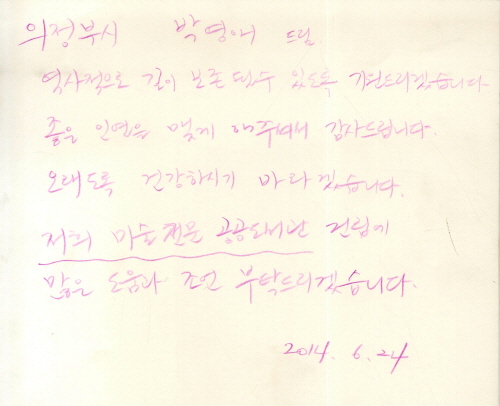 의정부시 박영애 드림
역사적으로 길이 보존 될수 있도록 기원드리겠습니다
좋은 인연을 맺게 해주셔서 감사드립니다.
오래도록 건강하시기 바라겠습니다.
저희 미술전문 공공도서관 건립에
많은 도움과 조언 부탁드리겠습니다.
2014. 6. 24